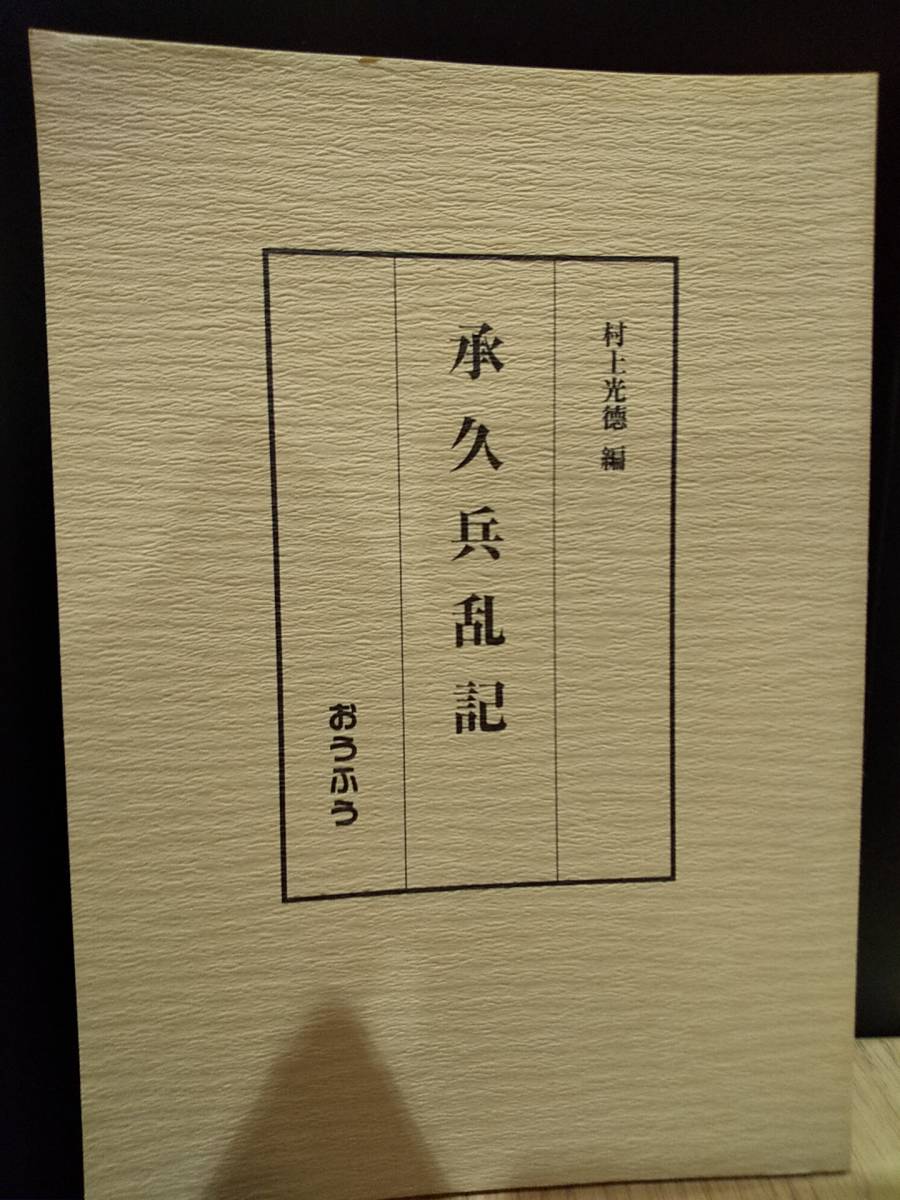 村上光徳 編
承久兵乱記
おうふう